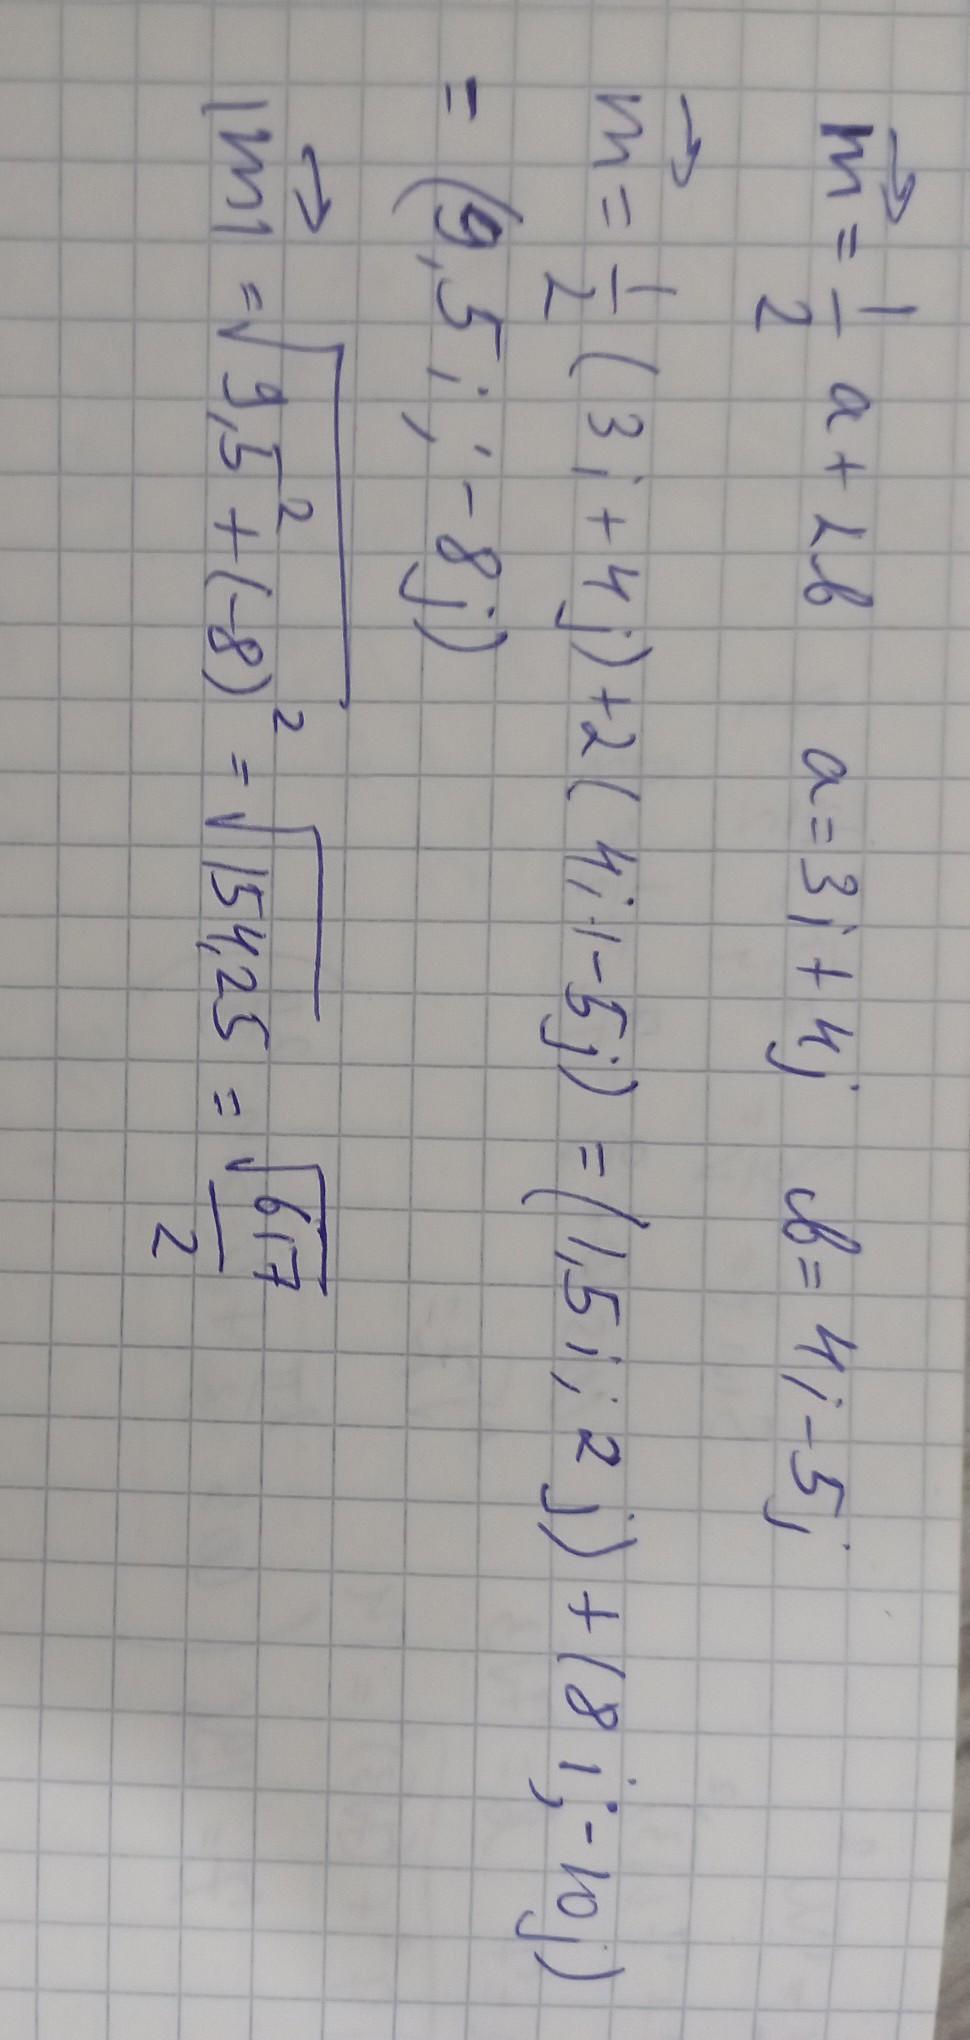 m⃗ = 1/2 a + 2b   a = 3i + 4j   b = 4i - 5j
m⃗ = 1/2 (3i + 4j) + 2(4i - 5j) = (1,5i; 2j) + (8i; -10j)
= (9,5i; -8j)
|m⃗| = √(9,5² + (-8)²) = √154,25 = √617/2